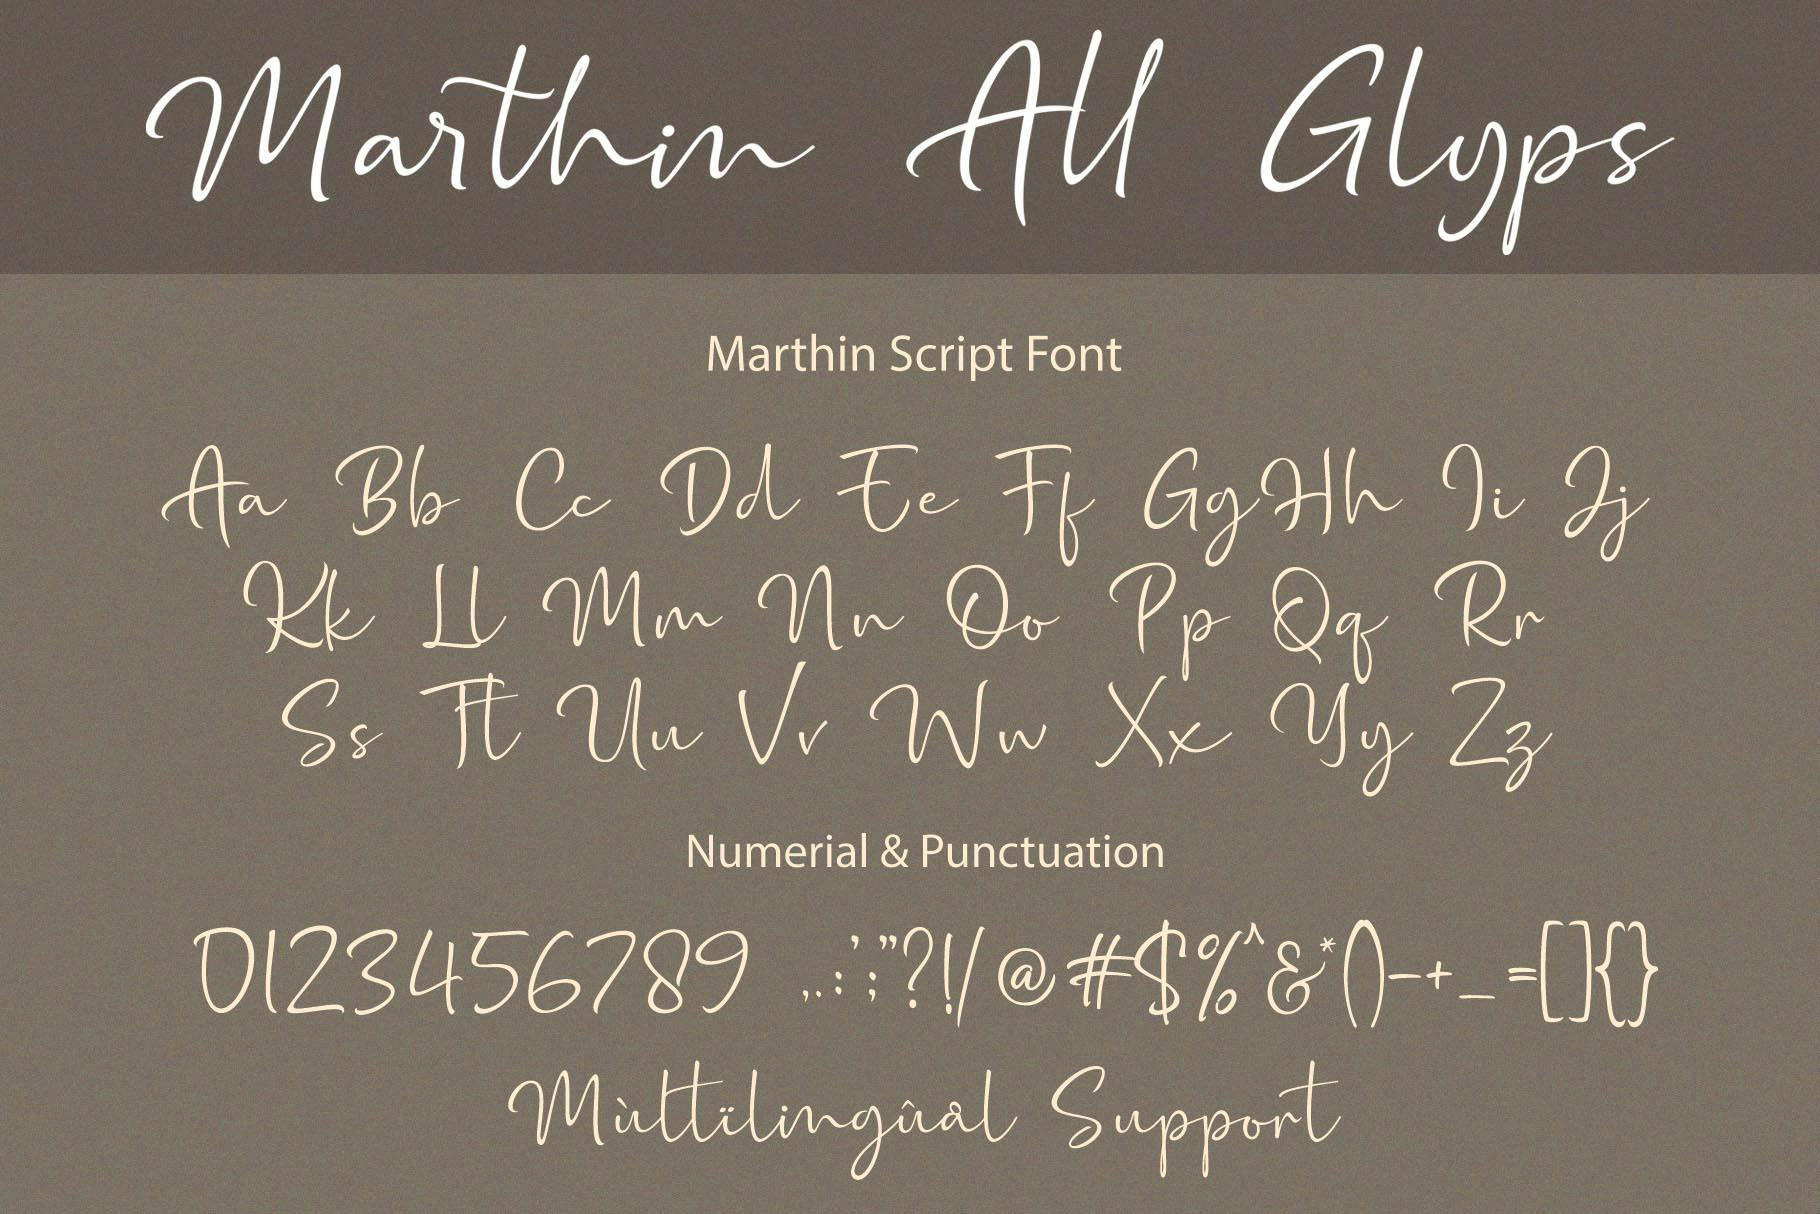 Marthin All Glyps
Marthin Script Font
Aa Bb Cc Dd Ee Ff Gg Hh Ii Jj
Kk Ll Mm Nn Oo Pp Qq Rr
Ss Tt Uu Vv Ww Xx Yy Zz
Numerial & Punctuation
0123456789 ,.:';"?!/@#$%^&*()-+_=[]{}
Mùltïlingûål Support